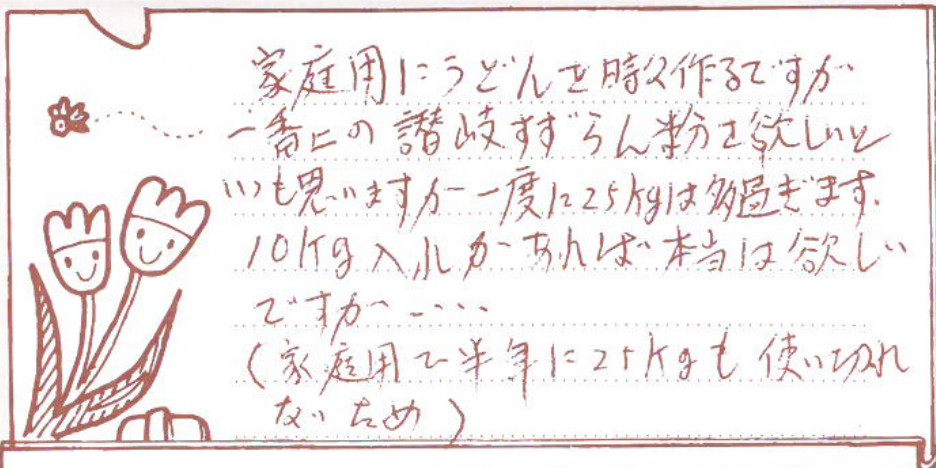 家庭用にうどんを時々作るですが
一番上の讃岐すずらん粉を欲しいと
いつも思いますが一度に25kgは多過ぎます.
10kg入れがあれば本当は欲しい
ですが....
(家庭用で半年に25kgも使い切れ
ないため)